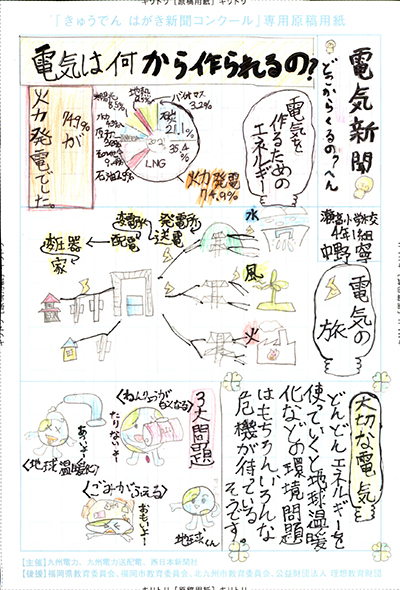 キリトリ [原稿用紙] キリトリ
「きゅうでん はがき新聞コンクール」専用原稿用紙
電気新聞
どこからくるの?へん
電気は何から作られるの?
電気を
作るための
エネルギー
バイオマス
3.2%
石炭
21.1%
35.4%
LNG
火力発電
74.9%
74.9%が
火力発電でした。
4年1組
中野 寧
電気の旅
水
風
火
発電所
送電
変電所
配電
変圧器
家
大切な電気
どんどんエネルギーを
使っていくと地球温暖
化などの環境問題
はもちろんいろんな
危機が待っている
そうです。
3大問題
〈ねんりょうが
なくなる〉
たりないよー
〈地球温暖化〉
あついよー
〈ごみがふえる〉
おもいよー
地球くん
【主催】九州電力、九州電力送配電、西日本新聞社
【後援】福岡県教育委員会、福岡市教育委員会、北九州市教育委員会、公益財団法人 理想教育財団
キリトリ [原稿用紙] キリトリ